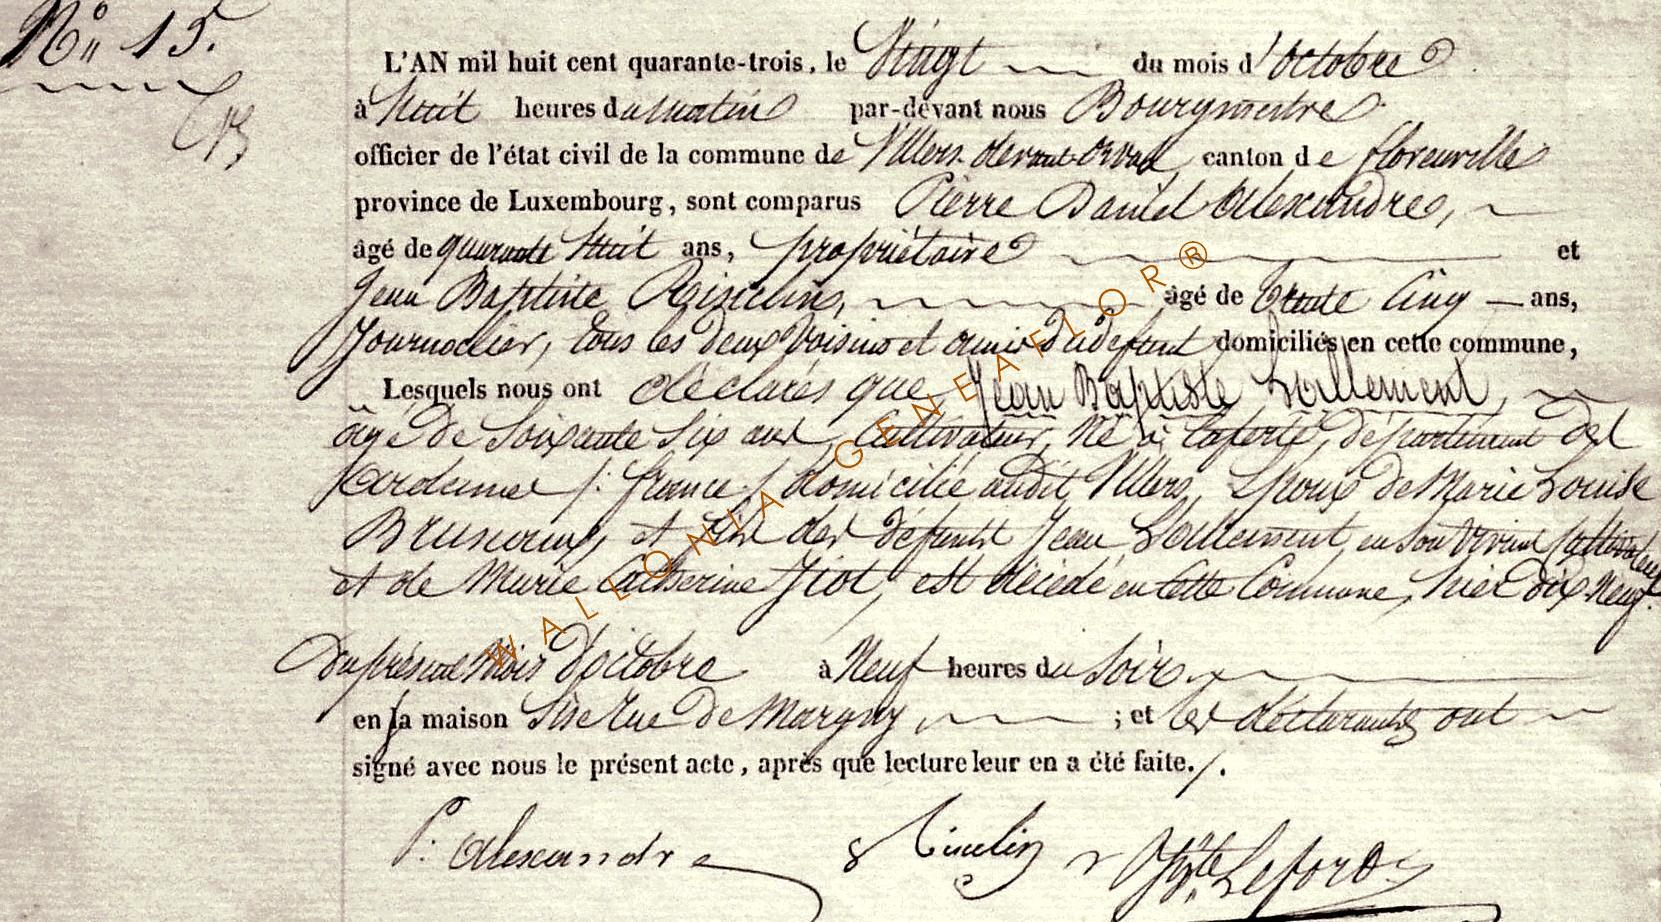 N° 15.
L'AN mil huit cent quarante-trois, le Vingt du mois d'Octobre
à huit heures du matin par-devant nous Bourgmestre
officier de l'état civil de la commune de Villers-devant-Orval, canton de florenville
province de Luxembourg, sont comparus Pierre Daniel Alexandre,
âgé de quarante huit ans, propriétaire et
Jean Baptiste âgé de trente Cinq ans,
Journalier, tous les deux Voisins et amis du défunt domiciliés en cette commune,
Lesquels nous ont déclarés que Jean Baptiste Lallement,
âgé de Soixante Six ans, Cultivateur, né à Laferté, département des
ardennes /: france / domicilié audit Villers, Epoux de Marie Louise
et fils des défunts Jean Lallement, en son vivant Cultivateur
et de Marie Catherine Jiot, est décédé en Cette Commune, hier dix-Neuf
Du présent Mois d'octobre à Neuf heures du Soir
en sa maison Sise rue de Margny, ; et les déclarants ont
signé avec nous le présent acte, après que lecture leur en a été faite./.
P: Alexandre Lefort
WALLONIA GENEAFLOR ®